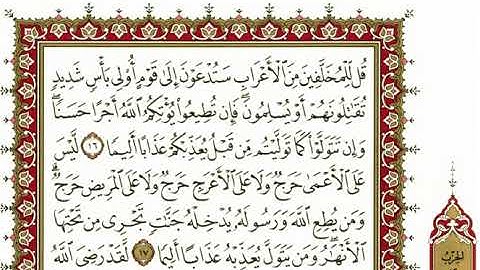 قُل لِّلْمُخَلَّفِينَ مِنَ الْأَعْرَابِ سَتُدْعَوْنَ إِلَىٰ قَوْمٍ أُو۟لِى بَأْسٍ شَدِيدٍ
تُقَـٰتِلُونَهُمْ أَوْ يُسْلِمُونَ ۖ فَإِن تُطِيعُوا۟ يُؤْتِكُمُ ٱللَّهُ أَجْرًا حَسَنًا ۖ
وَإِن تَتَوَلَّوْا۟ كَمَا تَوَلَّيْتُم مِّن قَبْلُ يُعَذِّبْكُمْ عَذَابًا أَلِيمًا ١٦ لَّيْسَ
عَلَى ٱلْأَعْمَىٰ حَرَجٌ وَلَا عَلَى ٱلْأَعْرَجِ حَرَجٌ وَلَا عَلَى ٱلْمَرِيضِ حَرَجٌ ۗ
وَمَن يُطِعِ ٱللَّهَ وَرَسُولَهُۥ يُدْخِلْهُ جَنَّـٰتٍ تَجْرِى مِن تَحْتِهَا
ٱلْأَنْهَـٰرُ ۖ وَمَن يَتَوَلَّ يُعَذِّبْهُ عَذَابًا أَلِيمًا ١٧ لَّقَدْ رَضِىَ ٱللَّهُ